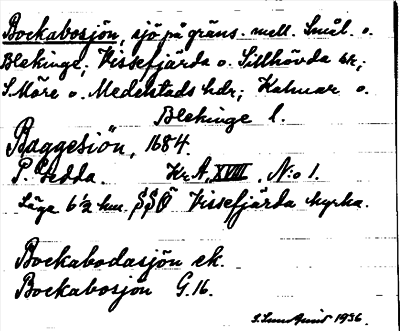 Bockabosjön, sjö på gräns. mell. Smål. o.
Blekinge; Vissefjärda o. Sillhövda sr;
S. Möre o. Medelstads hdr; Kalmar o.
Blekinge l.
Baggesiön, 1684.
P. Gedda. Kr. A. XVIII. N:o 1.
Läge 6½ km. SSÖ Vissefjärda kyrka.
Bockabodasjön ek.
Bockabosjön G. 16.
S. Lundquist 1936.